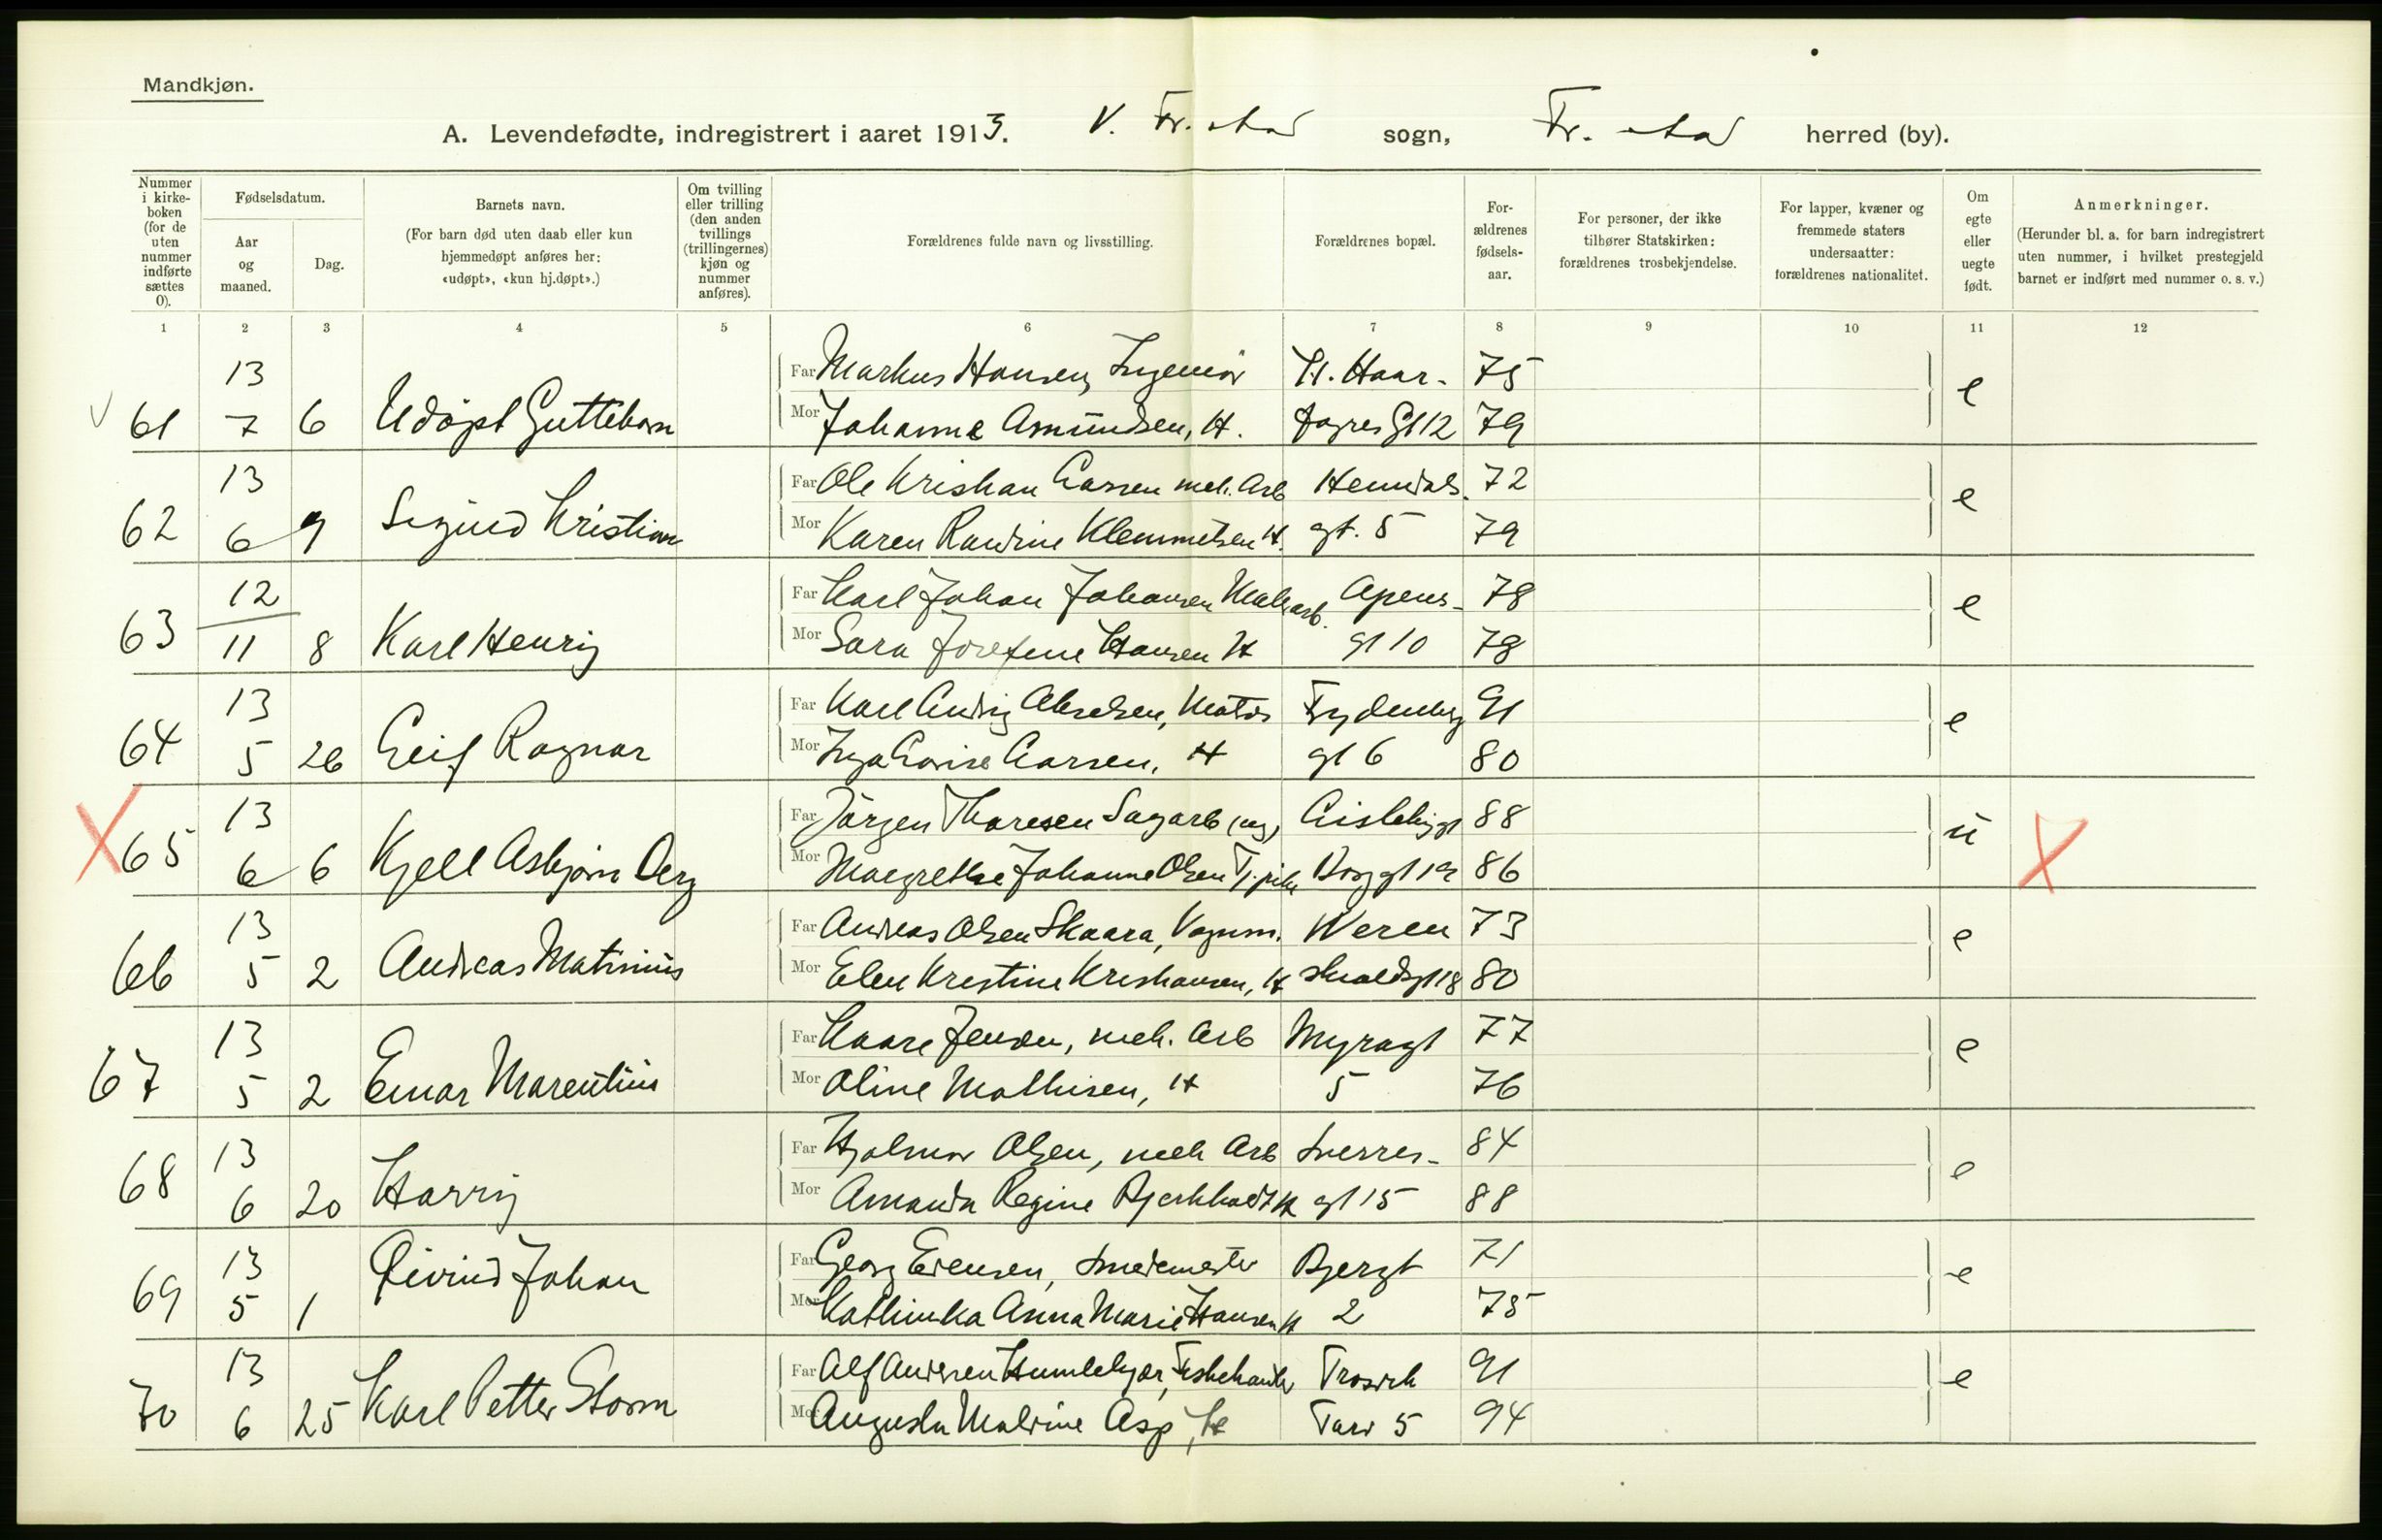 Mandkjøn.
A. Levendefødte, indregistrert i aaret 1913. V. Fr.stad sogn, Fr.stad herred (by).
Nummer i kirkeboken (for de uten nummer indførte sættes 0).
Fødselsdatum.
Aar og maaned.
Dag.
Barnets navn.
(For barn død uten daab eller kun hjemmedøpt anføres her: «udøpt», «kun hj.døpt».)
Om tvilling eller trilling (den anden tvillings (trillingernes) kjøn og nummer anføres).
Forældrenes fulde navn og livsstilling.
Forældrenes bopæl.
Forældrenes fødselsaar.
For personer, der ikke tilhører Statskirken: forældrenes trosbekjendelse.
For lapper, kvæner og fremmede staters undersaatter: forældrenes nationalitet.
Om egte eller uegte født.
Anmerkninger.
(Herunder bl. a. for barn indregistrert uten nummer, i hvilket prestegjeld barnet er indført med nummer o. s. v.)
1 2 3 4 5 6 7 8 9 10 11 12
13 Far Markus Hansen, Ingeniör H. Haar- 75 e
61 7 6 Udöpt Guttebarn Mor Johanne Amundsen, H. fagres Gt 12 79
13 Far Ole Kristian Larsen mek. Arb 72 e
62 6 9 Sigurd Kristian Mor Karen Randine Klemmetsen H. gt. 5 79
12 Far Karl Johan Johansen Mek arb. Apenes- 78 e
63 11 8 Karl Henry Mor Sara Josefine Hansen H gt 10 78
13 Far Karl Ludvig 91 e
64 5 26 Leif Ragnar Mor Inga Lovise Larsen, H gt 6 80
13 Far Jörgen Thoresen Sagarb (ug) 88 u
65 6 6 Kjell Asbjörn Mor Margrethe Johanne Olsen Tj.pike 86
13 Far Andreas Olsen Skaara, Vognm. Weren 73 e
66 5 2 Andreas Matinius Mor Elen Kristine Kristiansen, H skioldsgt 18 80
13 Far Kaare Jensen, mek. Arb Myragt 77 e
67 5 2 Einar Marentius Mor Oline Mathisen, H 5 76
13 Far Hjalmar Olsen, mek Arb Sverres- 84 e
68 6 20 Harry Mor Amanda Regine Bjerkholdt H gt 15 88
13 Far Georg Evensen, Smedmester Bjergt 71 e
69 5 1 Öivind Johan Mor Kathinka Anna Marie Hansen H 2 75
13 Far Alf Andersen Humlekjær, Fiskehandler Trosvik 91 e
70 6 25 Karl Petter Storm Mor Augusta Malvine Asp, H Tarv 5 94